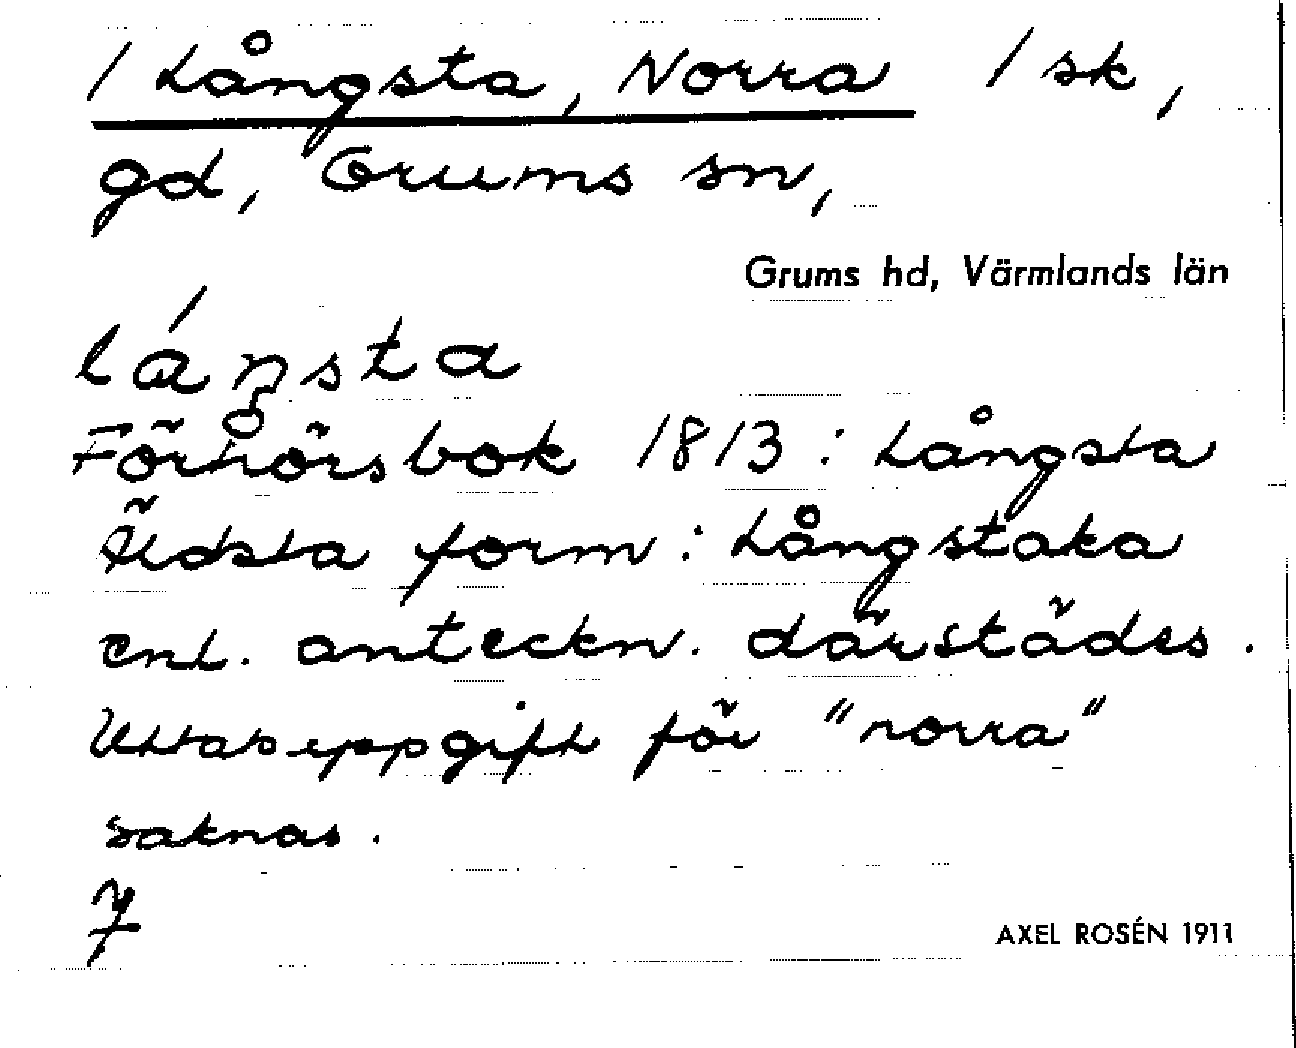 / Långsta, Norra / sk,
gd, Grums sn,
Grums hd, Värmlands län
lángsta
Förhörsbok 1813: Långsta
Äldsta form: Långstaka
enl. anteckn. därstädes.
Uttalsuppgift för "norra"
saknas.
7
AXEL ROSÉN 1911